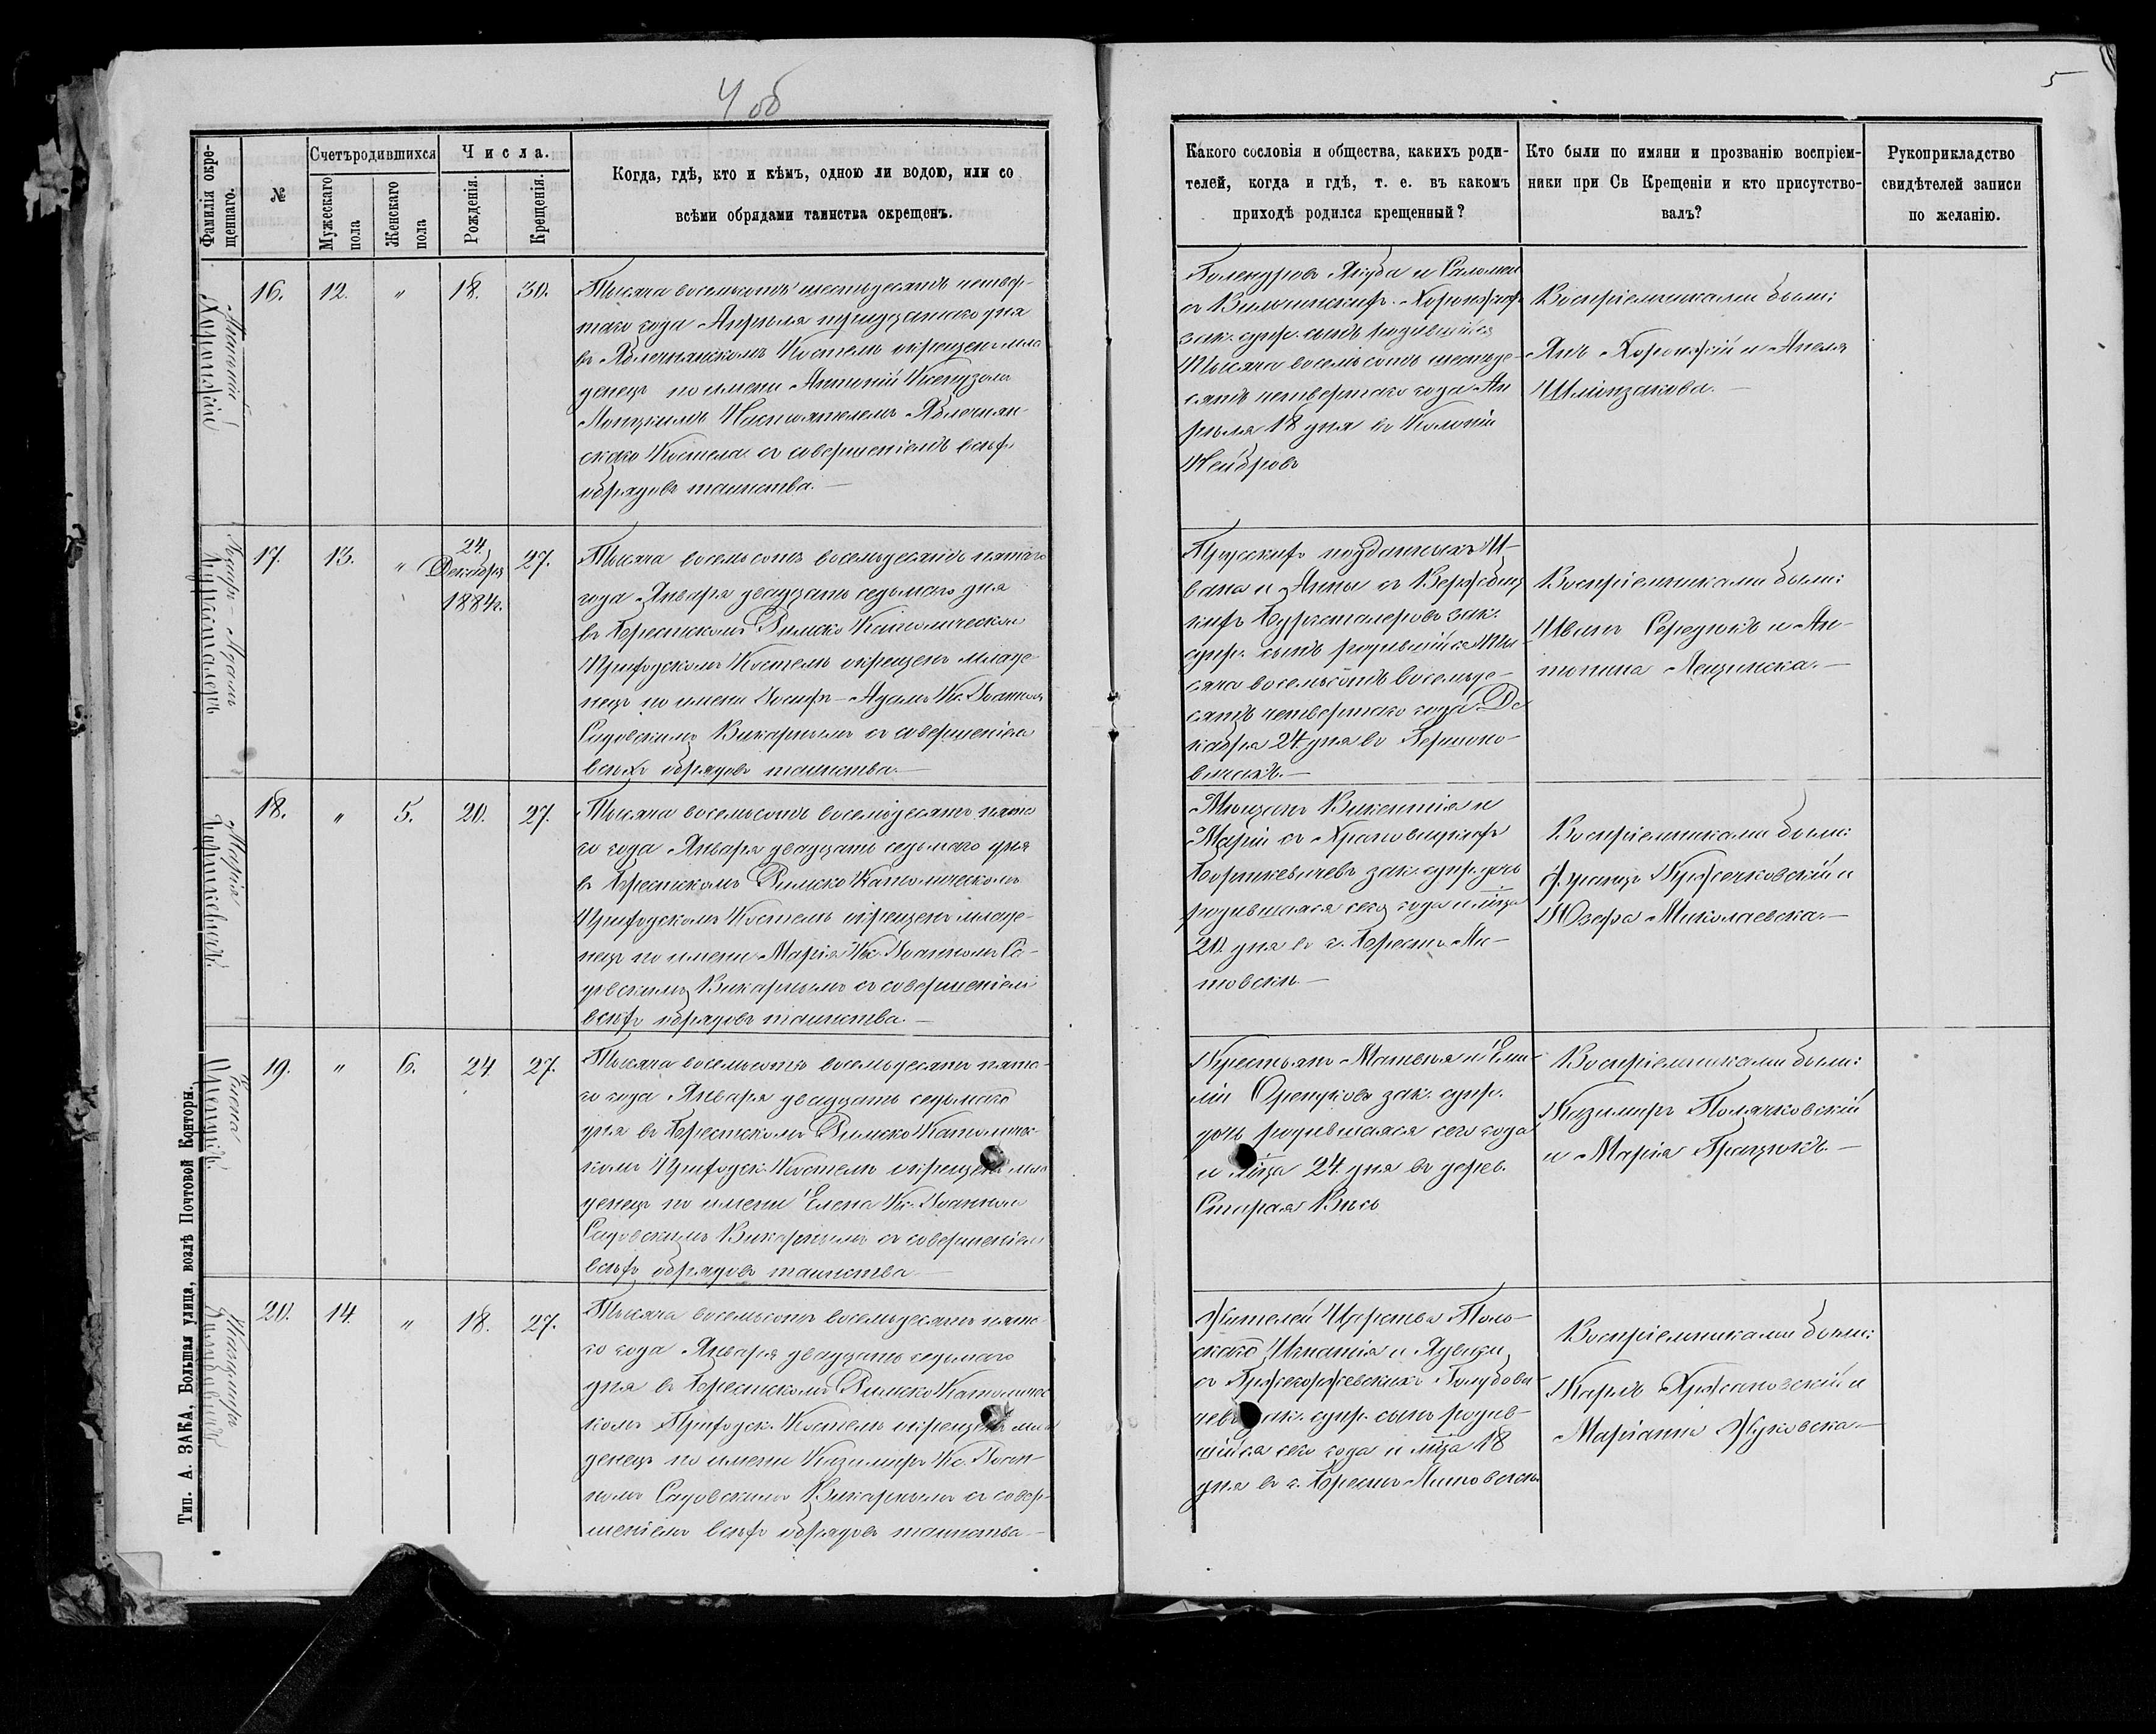 4 об
5
Фамилія окре-
щеннаго.
№
Счетъ родившихся
Мужескаго
пола
Женскаго
пола
Числа.
Рожденія.
Крещенія.
Когда, гдѣ, кто и кѣмъ, одною ли водою, или со
всѣми обрядами таинства окрещенъ.
Какого сословія и общества, какихъ роди-
телей, когда и гдѣ, т. е. въ какомъ
приходѣ родился крещенный?
Кто были по имяни и прозванію воспріем-
ники при Св Крещеніи и кто присутство-
валъ?
Рукоприкладство
свидѣтелей записи
по желанію.
Антоній
Хоронжій
16.
12.
"
18.
30.
Тысяча восемьсотъ шестьдесятъ четвер-
таго года Апрѣля тридцатаго дня
въ Яблочнянскомъ Костелѣ окрещенъ мла
денецъ по имени Антоній Ксендзомъ
Настоятелемъ Яблочнян-
скаго Костела съ совершеніемъ всѣхъ
обрядовъ таинства. —
Голендровъ Якуба и Саломеи
съ Хоронжихъ
зак. супр. сынъ родившійся
Тысяча восемьсотъ шестьде-
сятъ четвертаго года Ап
рѣля 18 дня въ Колоніи
Нейбровъ
Воспріемниками были:
Янъ Хоронжій и Анеля
—
Іосифъ-Адамъ
Бургсталеръ
17.
13.
"
24.
Декабря
1884г.
27.
Тысяча восемьсотъ восемьдесятъ пятаго
года Января двадцать седьмаго дня
въ Брестскомъ Римско Католическом
Приходскомъ Костелѣ окрещенъ младе-
нецъ по имени Іосифъ-Адамъ Кс. Іоанном
Садовскимъ Викарнымъ съ совершеніем
всѣхъ обрядовъ таинства. —
Прусскихъ подданныхъ И-
вана и Анны съ Вержбиц
кихъ Бургсталеровъ зак.
супр. сынъ родившійся Ты-
сяча восемьсотъ восемьде-
сятъ четвертаго года Де
кабря 24 дня въ
вичахъ. —
Воспріемниками были:
Иванъ Середюкъ и Ан-
тонина Лещинска. —
Марія
Борткевичъ.
18.
"
5.
20.
27.
Тысяча восемьсотъ восемьдесятъ пята
го года Января двадцать седьмаго дня
въ Брестскомъ Римско Католическомъ
Приходскомъ Костелѣ окрещенъ младе-
нецъ по имени Марія Кс. Іоанномъ Са-
довскимъ Викарнымъ съ совершеніемъ
всѣхъ обрядовъ таинства. —
Мѣщанъ Викентія и
Маріи съ Храповицкихъ
Борткевичевъ зак. супр. дочь
родившаяся сего года и мѣсца
20. дня въ г. Брестъ Ли-
товскѣ. —
Воспріемниками были:
Францъ Кржечковскій и
Юзефа Миколаевска. —
Елена
19.
"
6.
24
27.
Тысяча восемьсотъ восемьдесятъ пята-
го года Января двадцать седьмаго
дня въ Брестскомъ Римско Католичес-
комъ Приходск. Костелѣ окрещенъ мла
денецъ по имени Елена Кс. Іоанномъ
Садовскимъ Викарнымъ съ совершеніем
всѣхъ обрядовъ таинства —
Крестьянъ Матвѣя и Эми-
ліи зак. супр.
дочь родившаяся сего года
и мѣсца 24 дня въ дерев.
Старая Весь
Воспріемниками были:
Казимиръ Полячковскій
и Марія —
Казимиръ
20.
14.
"
18.
27.
Тысяча восемьсотъ восемьдесятъ пята-
го года Января двадцать седьмаго
дня въ Брестскомъ Римско Католичес
комъ Приходск. Костелѣ окрещенъ мла
денецъ по имени Казимиръ Кс. Іоан-
номъ Садовскимъ Викарнымъ съ совер-
шеніемъ всѣхъ обрядовъ таинства —
Жителей Царства Поль-
скаго Игнатія и Ядвиги
съ Гржегоржевскихъ Голубови-
чевъ зак. супр. сынъ родив-
шійся сего года и мѣсца 18
дня въ г. Брестъ Литовскѣ.
Воспріемниками были:
Карлъ Хржановскій и
Маріанна Жуковска. —
Тип. А. ЗАКА, Большая улица, возлѣ Почтовой Конторы.